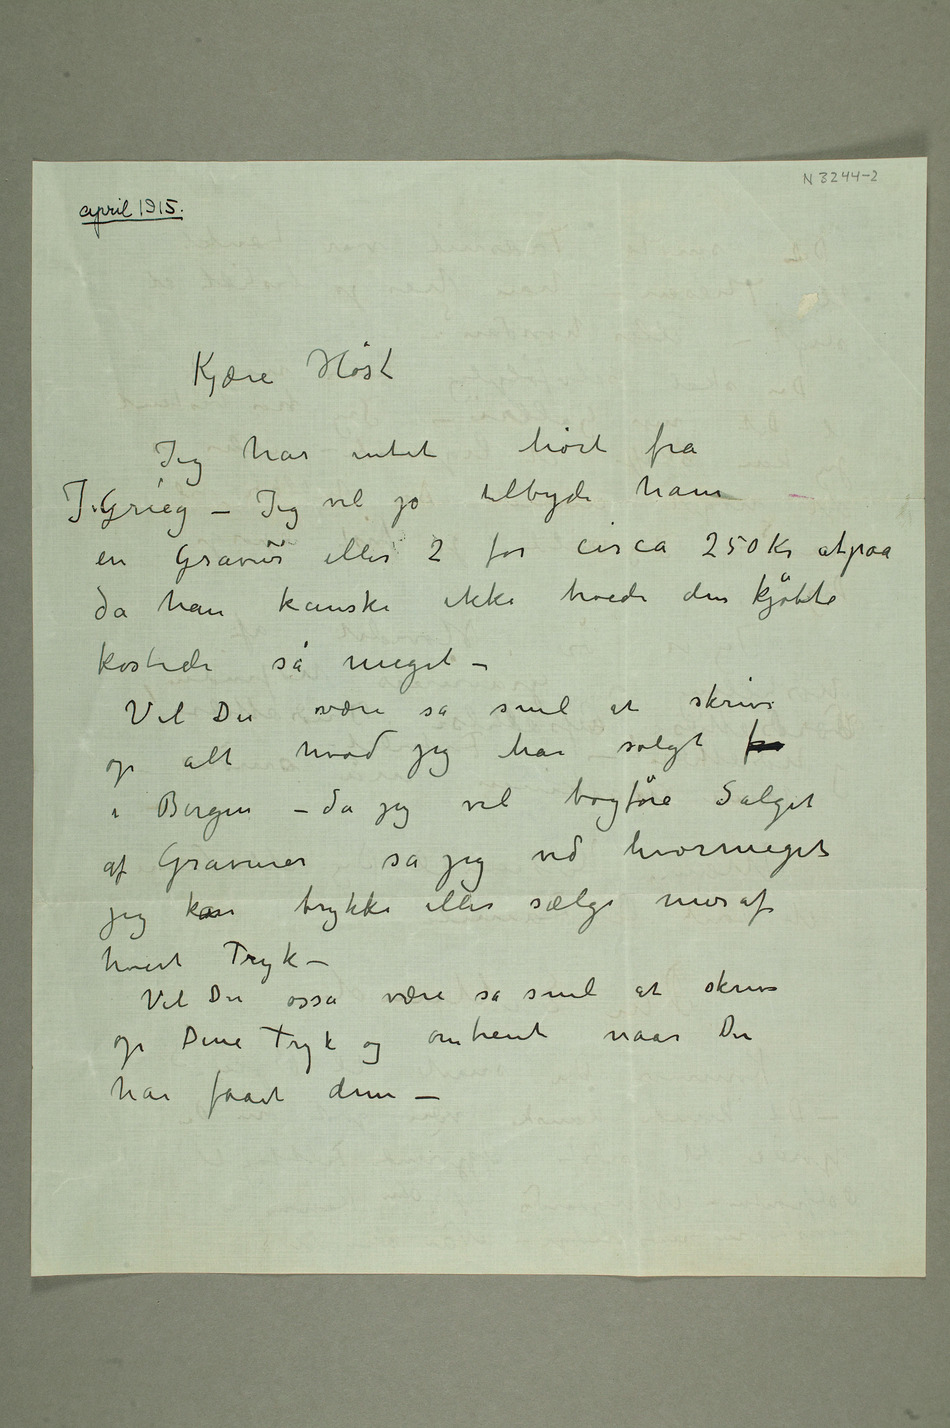 N 3244-2
april 1915.
Kjære Höst
Jeg har intet hört fra
J. Grieg – Jeg vil jo tilbyde ham
en Gravür eller 2 for circa 250 Kr atpaa
da han kanske ikke troede den kjöbte
kostede så meget –
Vil Du være så snil at skrive
op alt hvad jeg har solgt
i Bergen – da jeg vil bogföre Salget
af Gravurer så jeg ved hvormeget
jeg kan trykke eller sælge mer af
hvert Tryk –
Vil Du osså være så snil at skrive
op Dine Tryk og omtrent naar Du
har faaet dem –